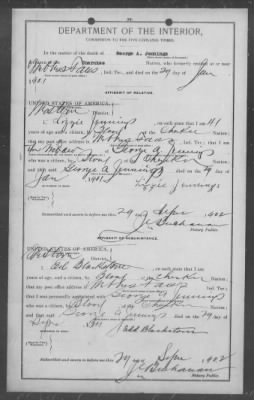 DEPARTMENT OF THE INTERIOR,
COMMISSION TO THE FIVE CIVILIZED TRIBES.
In the matter of the death of George A. Jennings
a citizen of the Cherokee Nation, who formerly resided at or near
Webbers Falls, Ind. Ter., and died on the 29 day of Jan
1901
AFFIDAVIT OF RELATIVE.
UNITED STATES OF AMERICA,
Western District
I, Lizzie Jennings, on oath state that I am 41
years of age and a citizen, by blood, of the Cherokee Nation;
that my post office address is Webbers Falls, Ind. Ter.; that I
am of George A Jennings
who was a citizen, by blood, of the Cherokee Nation;
and that said George A Jennings died on the 29 day of
Jan 1901
Lizzie Jennings
Subscribed and sworn to before me this 29 day of Sept 1902
J Buchanan
Notary Public.
AFFIDAVIT OF ACQUAINTANCE.
UNITED STATES OF AMERICA,
Western District
I, Ed Blackstone, on oath state that I am
years of age, and a citizen, by blood, of the Cherokee Nation;
that my post office address is Webbers Falls, Ind. Ter.;
that I was personally acquainted with George A Jennings
who was a citizen, by blood, of the Cherokee Nation;
and that said George A Jennings died on the 29 day of
1901
Ed Blackstone
Subscribed and sworn to before me this 29 day of Sept 1902
J Buchanan
Notary Public.